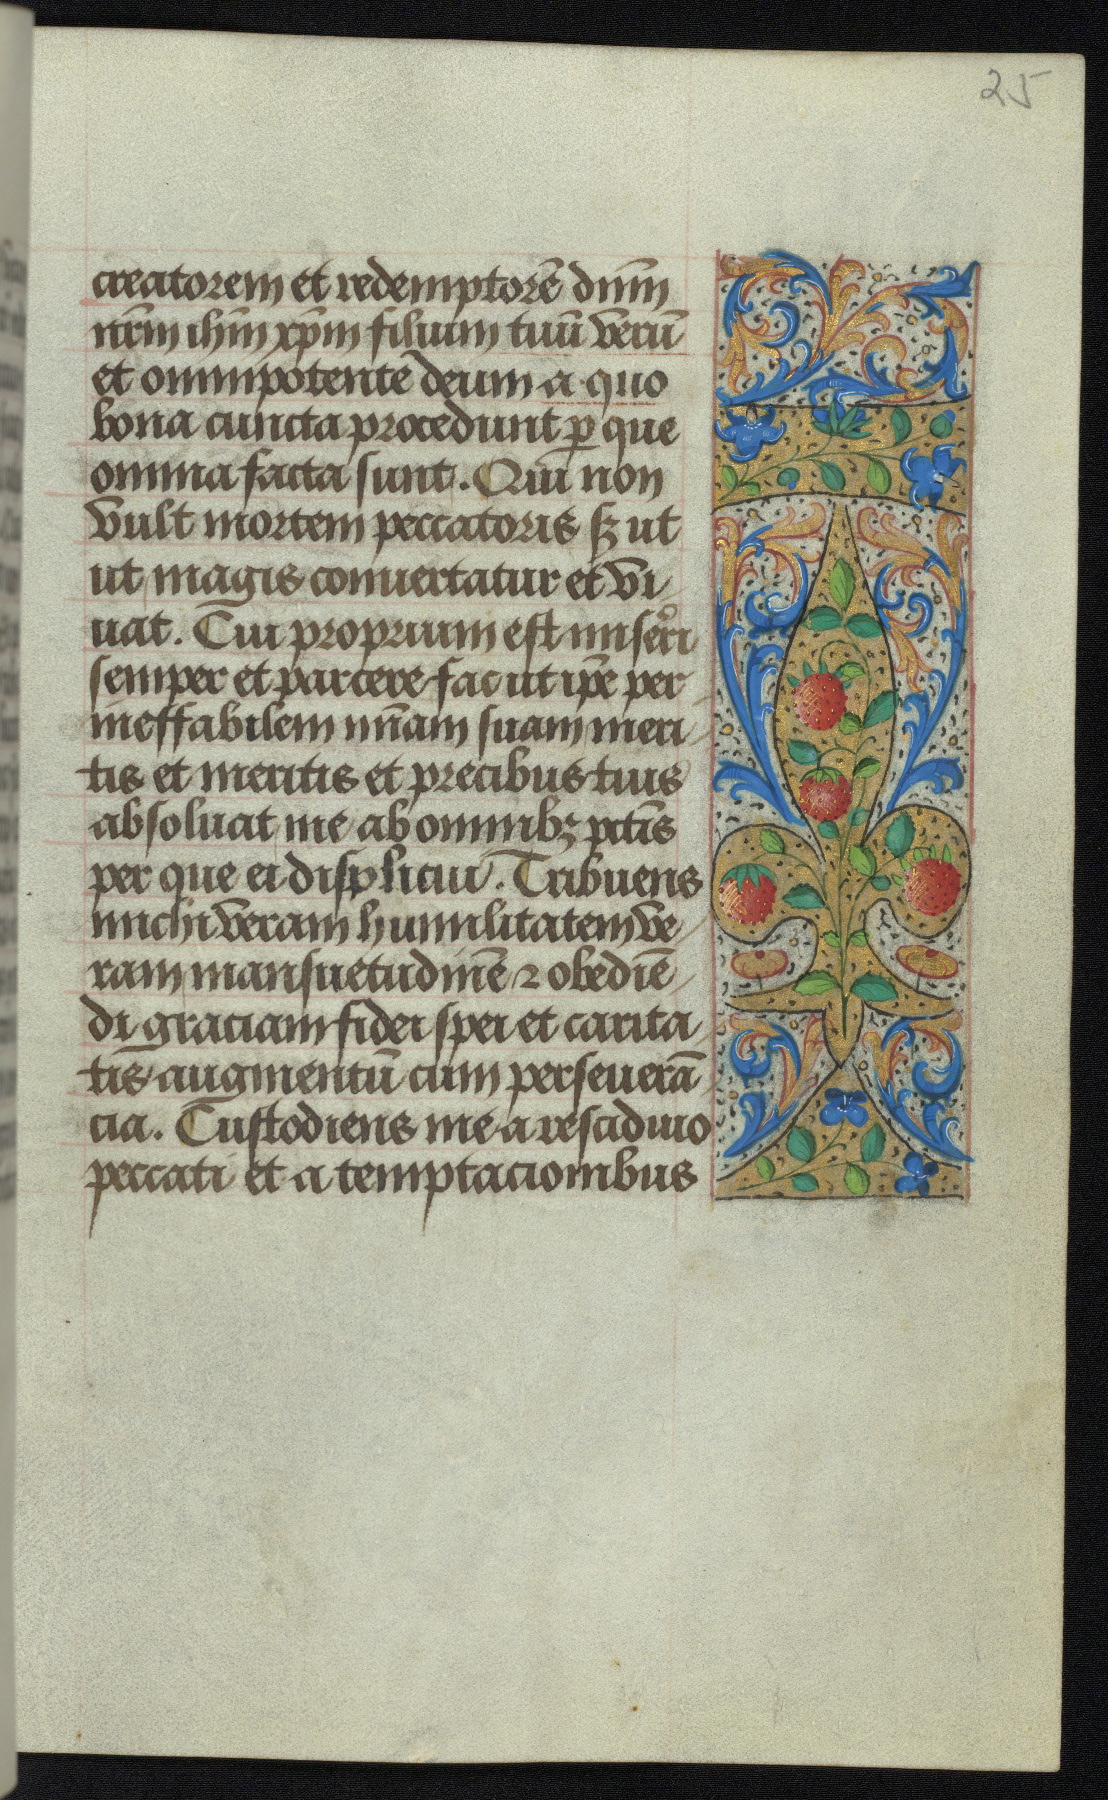 25
creatorem et redemptorē dn̄m
nr̄m ihm̄ xp̄m filium tuū verū
et omnipotentē deum a quo
bona cuncta procedunt ꝑ que
omnia facta sunt. Qui non
vult mortem peccatoris sꝫ ut
ut magis conuertatur et vi
uat. Cui proprium est miserͤri
semper et parcere fac ut ip̄e per
ineffabilem mn̄am suam meri
tis et meritis et precibus tuis
absoluat me ab omnibꝫ pctīs
per que ei displicui. Tribuens
michi veram humilitatem ve
ram mansuetudinē ⁊ obediē
di graciam fidei spei et carita
tis augmentū cum perseuerā
cia. Custodiens me a rescidiuo
peccati et a temptacionibus